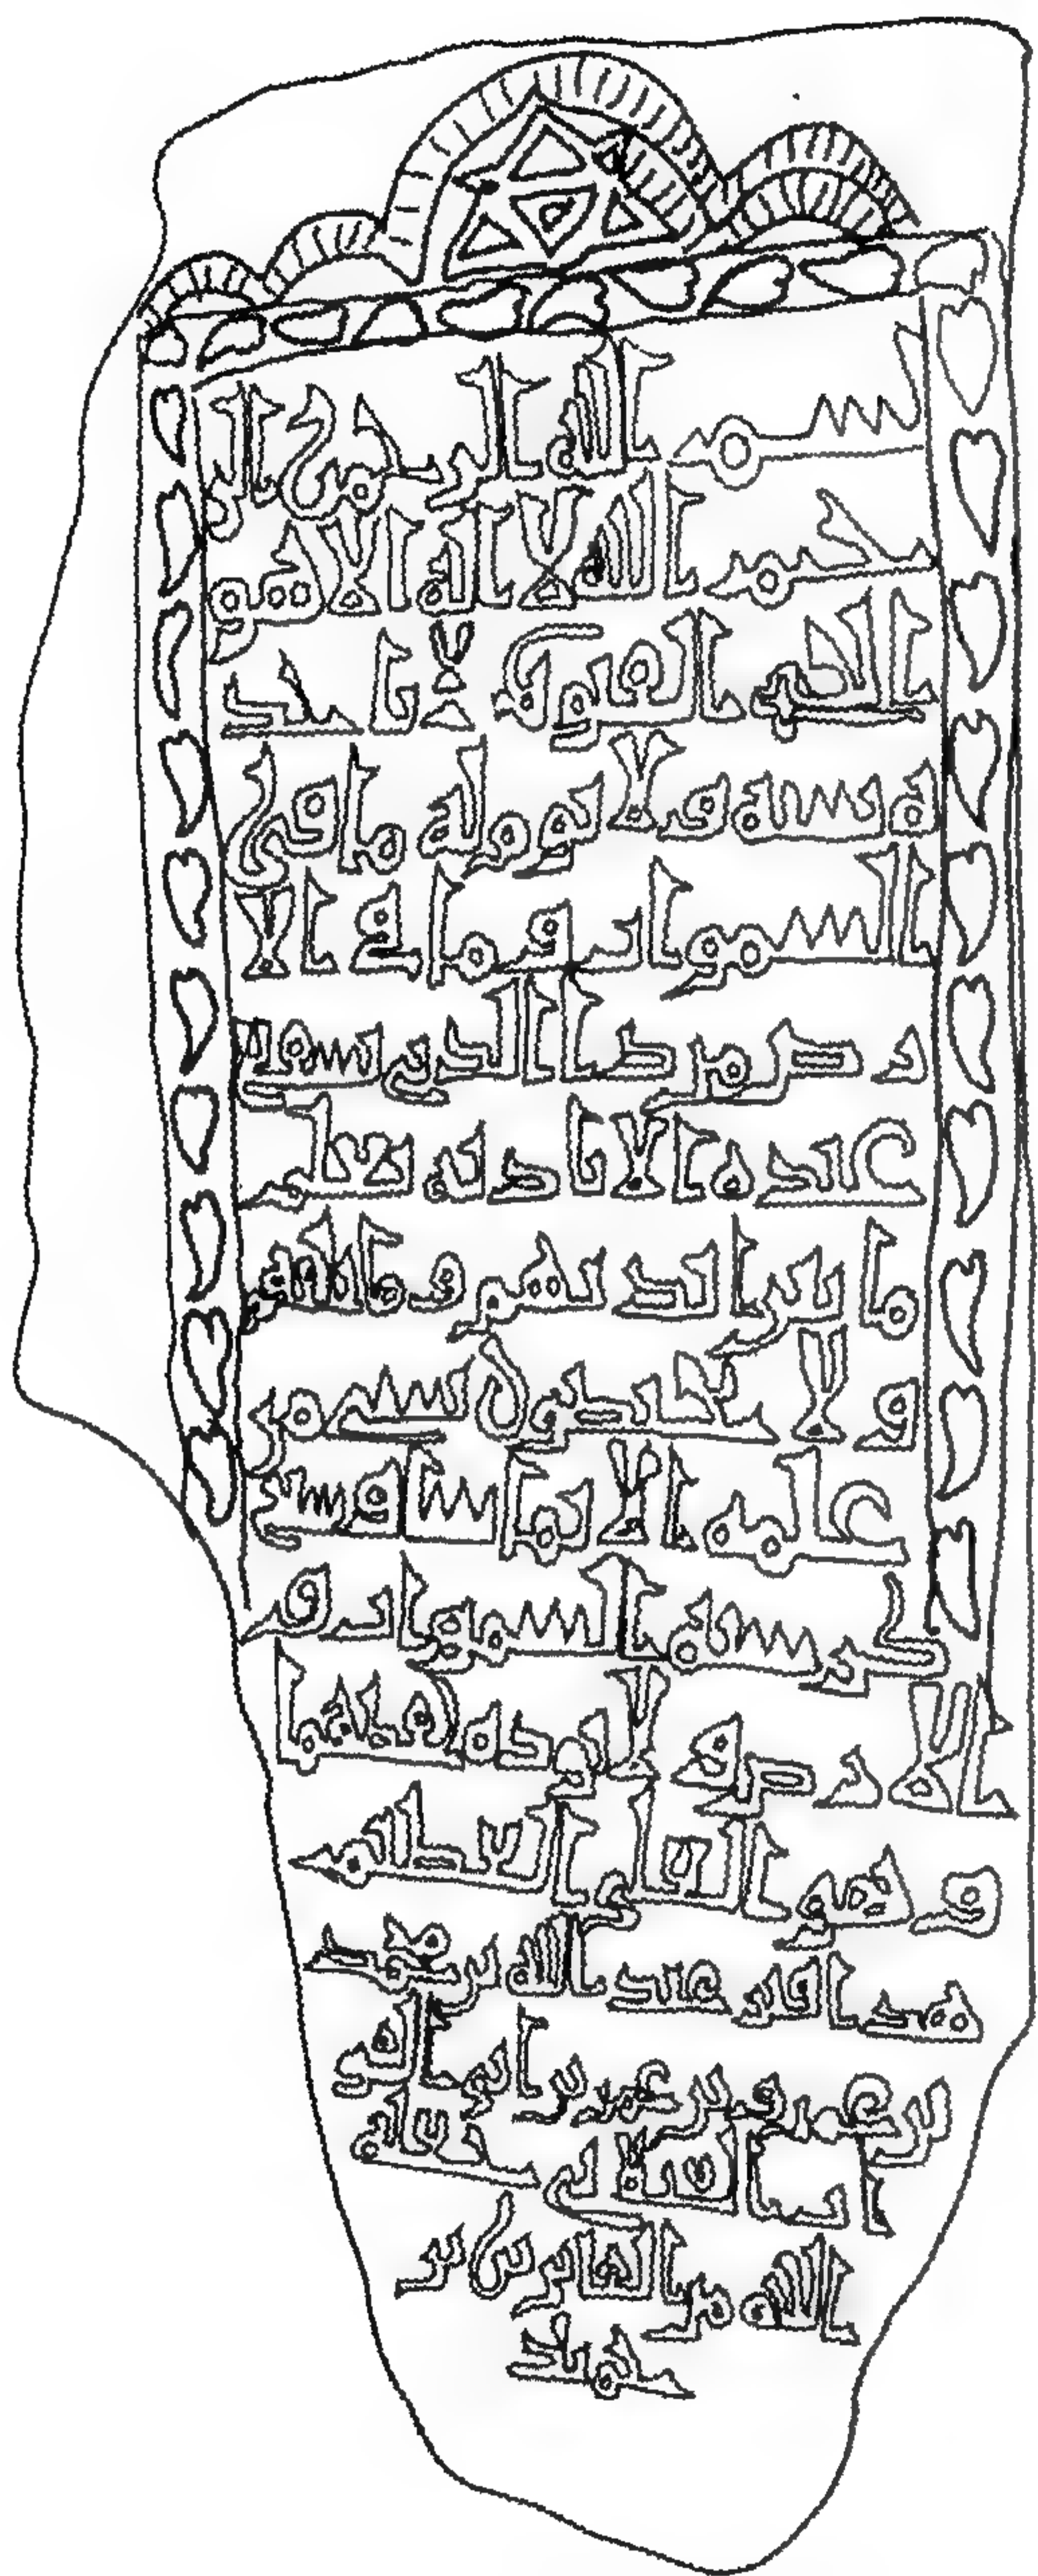 بسم الله الرحمن الر
حيم الله لا اله الا هو
الحي القيوم لا تاخذ
ه سنه ولا نوم له ما في
السموات وما في الا
رض من ذا الذي يشفع
عنده الا باذنه يعلم
ما بين ايديهم وما خلفهم
ولا يحيطون بشي من
علمه الا بما شا وسع
كرسيه السموات و
الارض ولا يوده حفظهما
وهو العلي العظيم
هذا قبر عبد الله بن محمد
بن عمرو بن عمر بن
الله من